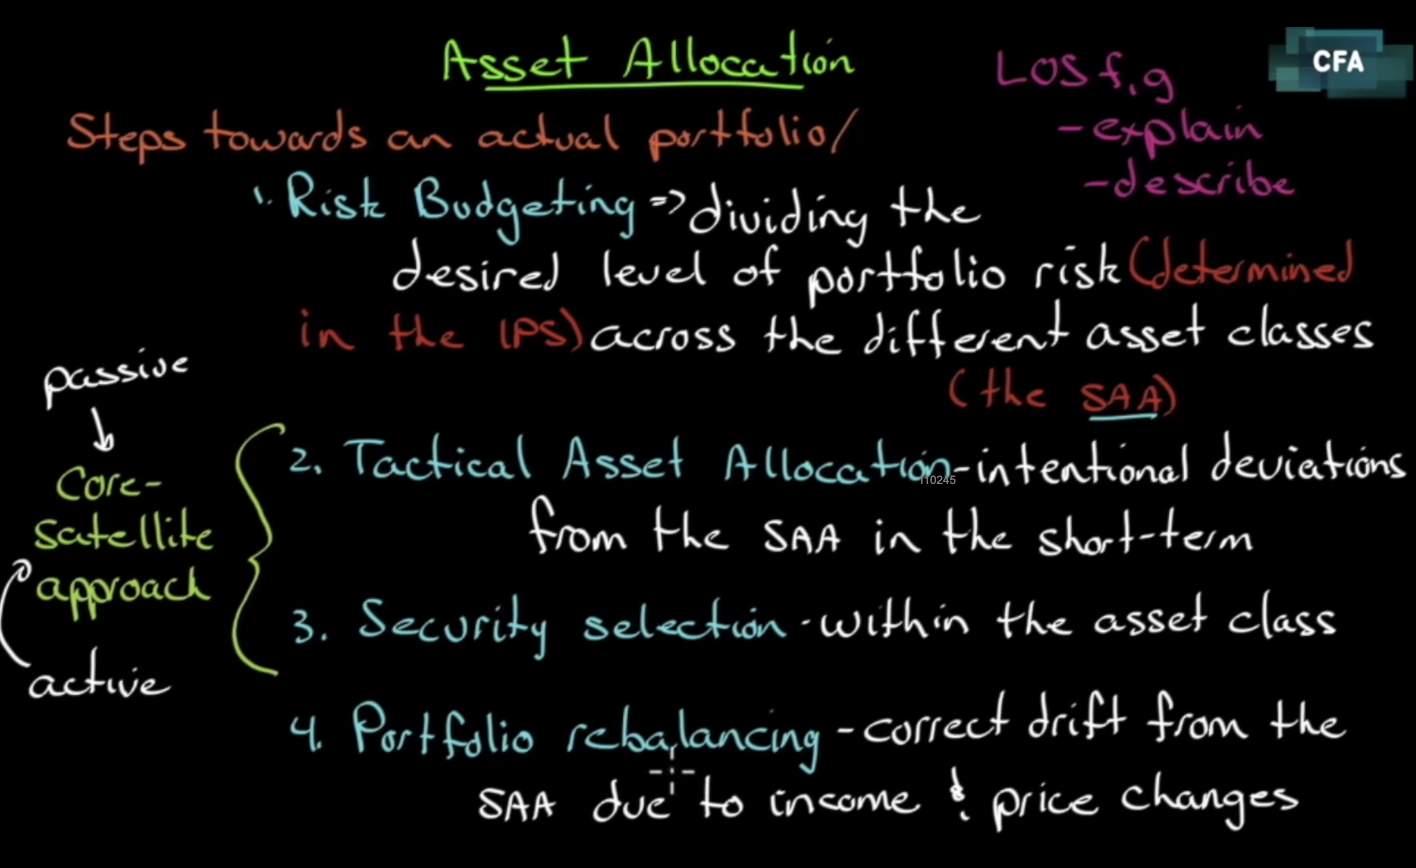 Asset Allocation
LOS f,g
- explain
- describe
CFA
Steps towards an actual portfolio/
1. Risk Budgeting => dividing the
desired level of portfolio risk (determined
in the IPS) across the different asset classes
(the SAA)
passive
Core-
satellite
approach
active
2. Tactical Asset Allocation - intentional deviations
110245
from the SAA in the short-term
3. Security selection - within the asset class
4. Portfolio rebalancing - correct drift from the
SAA due to income & price changes